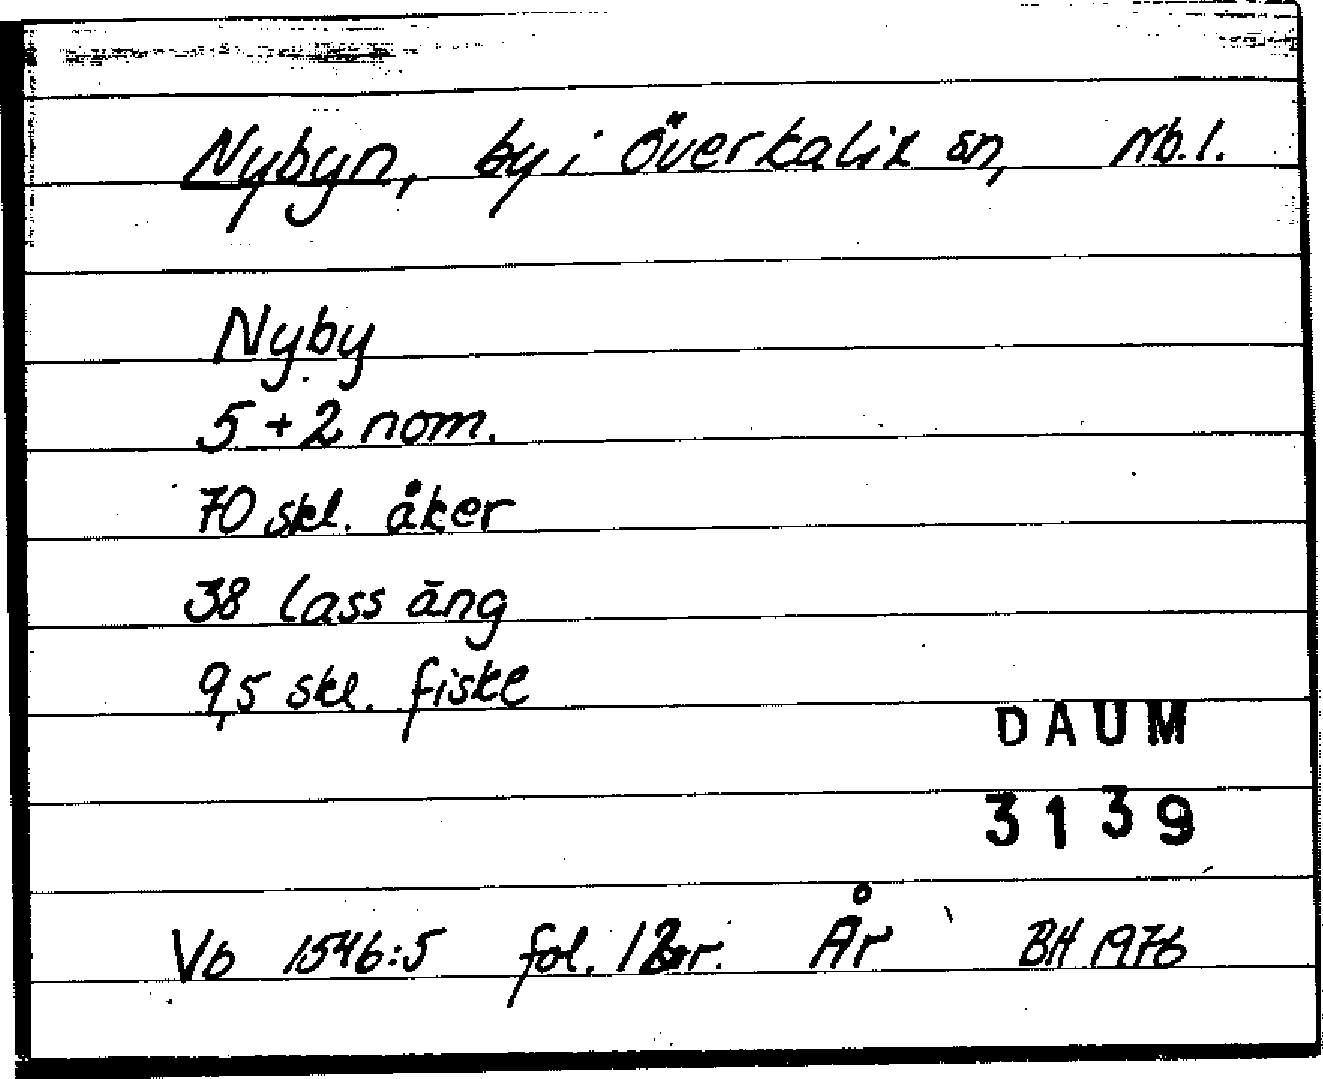 Nybyn, by i överkalix sn, Nb.l.
Nyby
5 + 2 nom.
70 skl. åker
38 lass äng
9,5 skl. fiske
DAUM
3139
Vb 1546:5 fol. År BH 1976